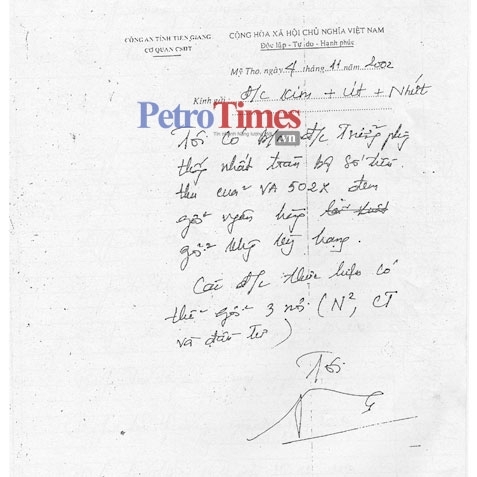 CÔNG AN TỈNH TIỀN GIANG
CƠ QUAN CSĐT
CỘNG HÒA XÃ HỘI CHỦ NGHĨA VIỆT NAM
Độc lập - Tự do - Hạnh phúc
Mỹ Tho, ngày 4 tháng 11 năm 2002
Kính gửi: đ/c Kim + Út + Nhứt
PetroTimes
.vn
Tôi có đ/c Trưởng phòng
thống nhất trên số tiền
thu của VA 502X đem
gởi ngân hàng
gởi không kỳ hạn.
Các đ/c thực hiện có
thể gởi 3 nơi (N², CT
và đầu tư)
Tôi